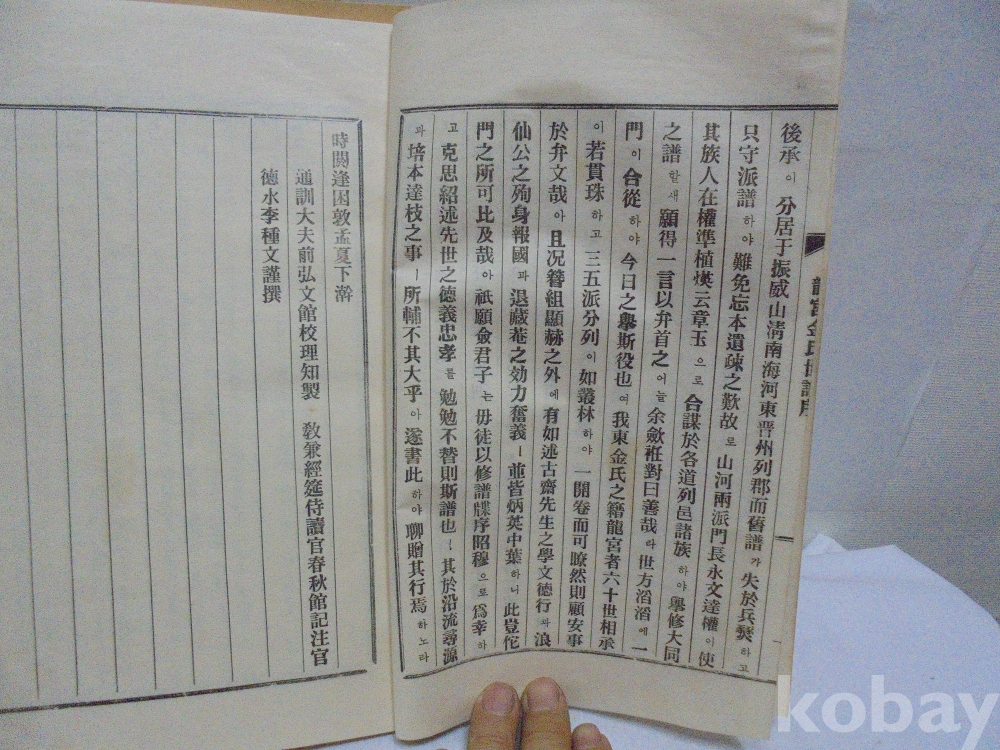 龍宮金氏世譜序
後承이 分居于振威山淸南海河東晋州列郡而舊譜가 失於兵燹하고
只守派譜하야 難免忘本遺疎之歎故로 山河兩派門長永文達權이 使
其族人在權準植煐云章玉으로 合謀於各道列邑諸族하야 擧修大同
之譜할새 願得一言以弁首之어늘 余歛袵對曰善哉라 世方滔滔에 一
門이 合從하야 今日之擧斯役也여 我東金氏之籍龍宮者六十世相承
이 若貫珠하고 三五派分列이 如叢林하야 一開卷而可瞭然則顧安事
於弁文哉아 且况簪組顯赫之外에 有如述古齋先生之學文德行과 浪
仙公之殉身報國과 退藏菴之効力奮義ㅣ 並皆炳英中葉하니 此豈佗
門之所可比及哉아 祇願僉君子는 毋徒以修譜牒序昭穆으로 爲幸하
고 克思紹述先世之德義忠孝를 勉勉不替則斯譜也ㅣ 其於沿流尋源
과 培本達枝之事ㅣ 所輔不其大乎아 遂書此하야 聊贈其行焉하노라
時閼逢困敦孟夏下澣
通訓大夫前弘文館校理知製 敎兼經筵侍讀官春秋館記注官
德水李種文謹撰
kobay